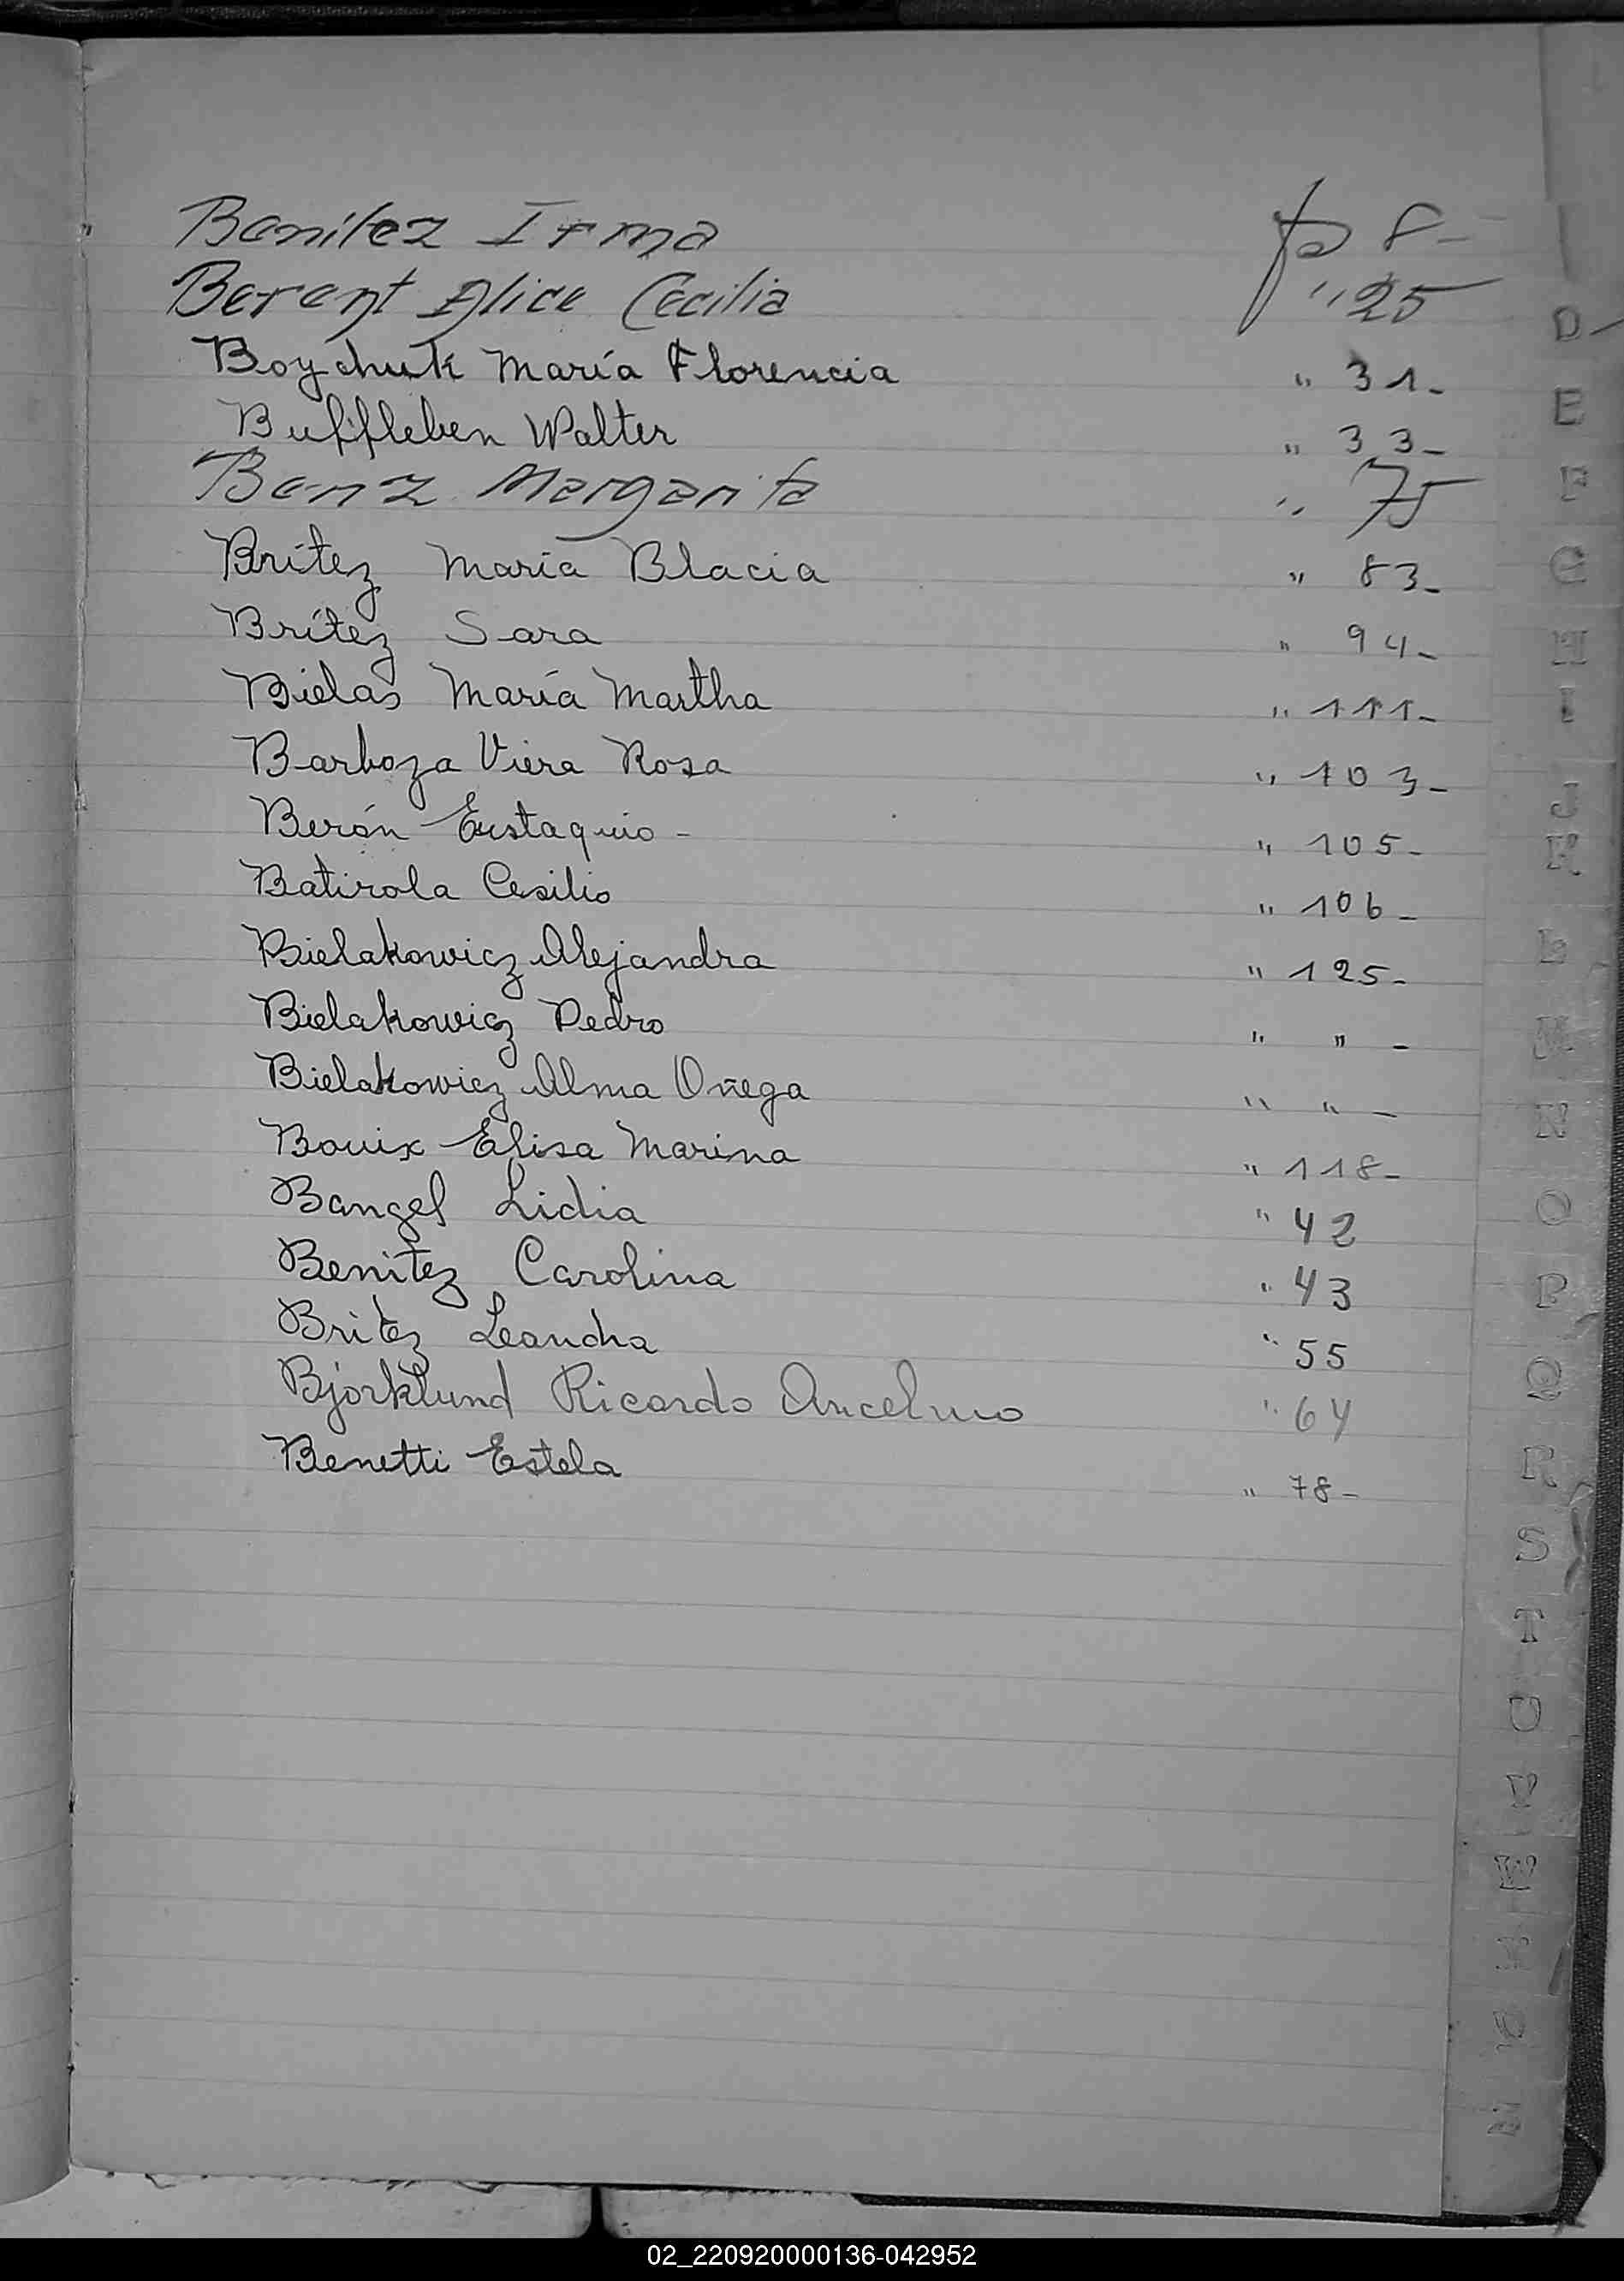 " Benítez Irma fo 8-
Berent Alice Cecilia " 25
Boychuk María Florencia " 31-
Buffleben Walter " 33-
Benz Margarita " 75
Brítez María Blacia " 83-
Brítez Sara " 94-
Bielas María Martha " 111-
Barboza Viera Rosa " 103-
Berón Eustaquio - " 105-
Batirola Cesilio " 106-
Bielakowicz Alejandra " 125-
Bielakowicz Pedro " " -
Bielakowicz Alma Oñega " " -
Bouix Elisa Marina " 118-
Bangel Lidia " 42
Benitez Carolina " 43
Britez Leandra " 55
Bjorklund Ricardo Ancelmo " 64
Benetti Estela " 78-
D
E
F
G
H
I
J
K
L
M
N
O
P
Q
R
S
T
U
V
W
02_220920000136-042952